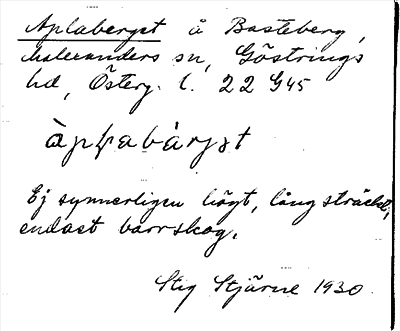 Aplaberget å Basteberg,
Malexanders sn, Göstrings
hd, Österg. l. 22 G45
àpḷabàrgət
Ej synnerligen högt, långsträckt,
endast barrskog.
Stig Stjärne 1930